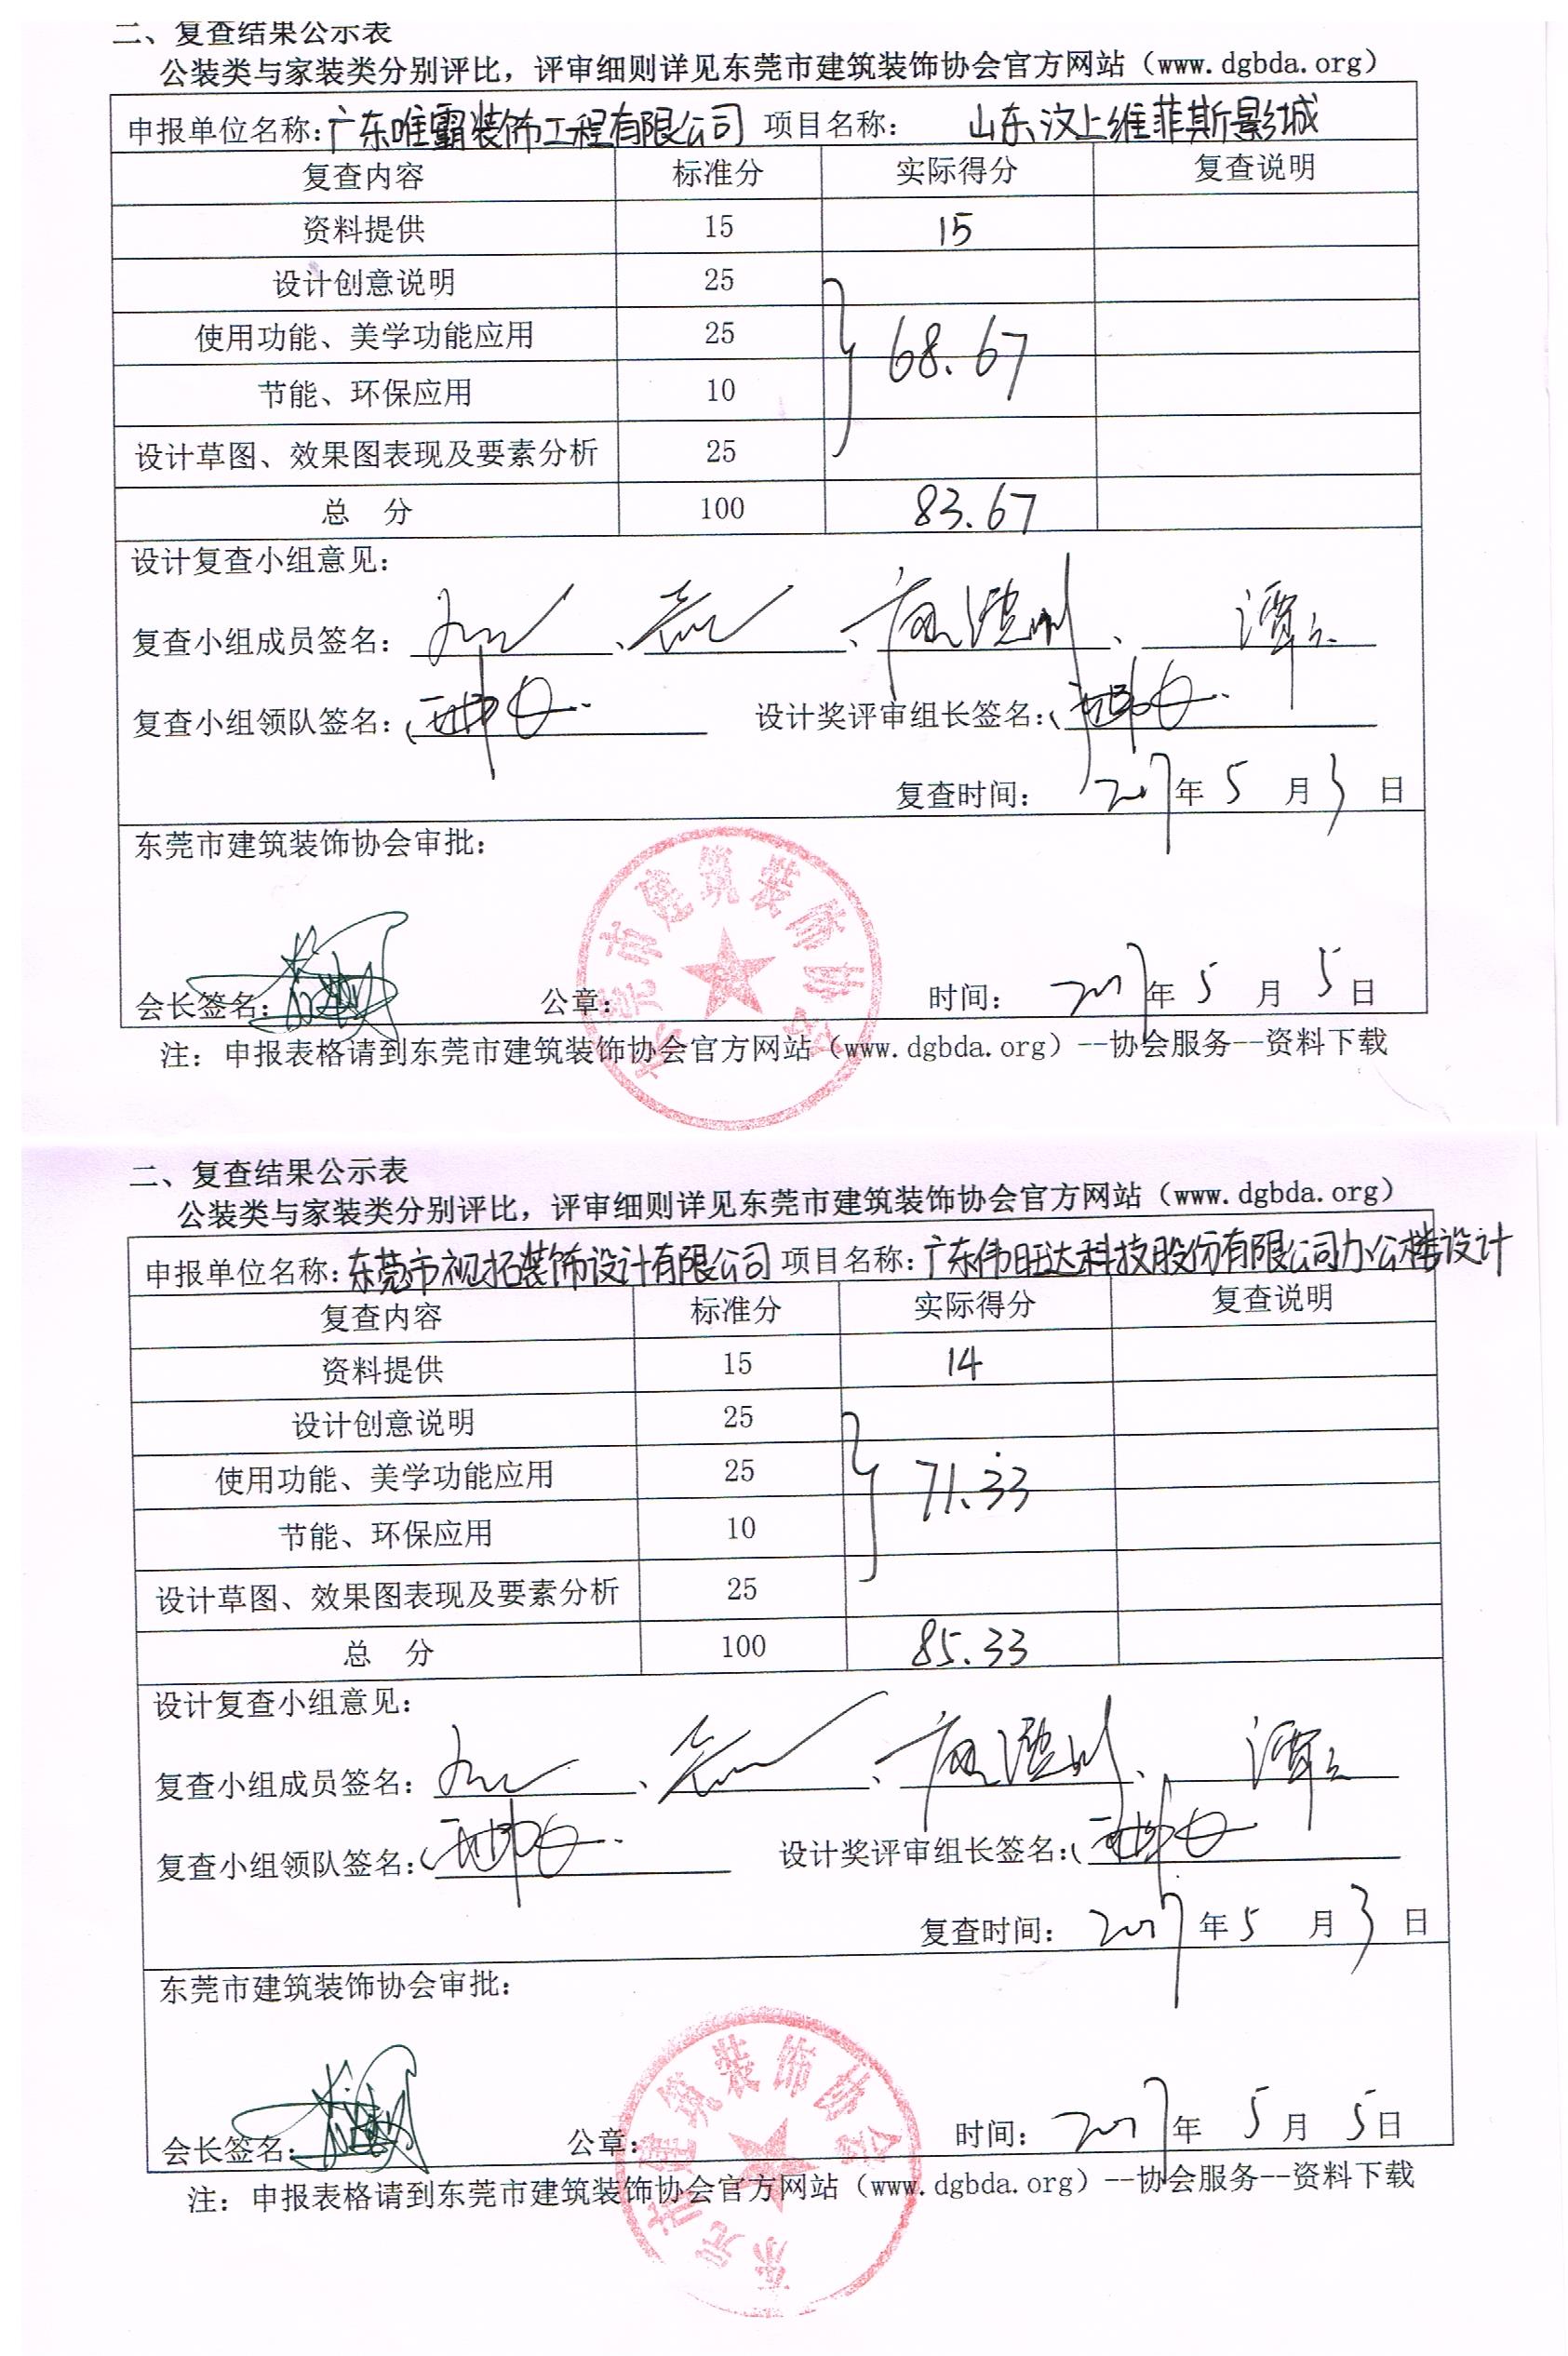 二、复查结果公示表
公装类与家装类分别评比，评审细则详见东莞市建筑装饰协会官方网站（www.dgbda.org）
申报单位名称：广东唯霸装饰工程有限公司 项目名称： 山东汶上维菲斯影城
复查内容 标准分 实际得分 复查说明
资料提供 15 15
设计创意说明 25
使用功能、美学功能应用 25 68.67
节能、环保应用 10
设计草图、效果图表现及要素分析 25
总 分 100 83.67
设计复查小组意见：
复查小组成员签名： 、 、 、
复查小组领队签名： 设计奖评审组长签名：
复查时间： 2017年 5 月 3 日
东莞市建筑装饰协会审批：
东莞市建筑装饰协会
会长签名： 公章： 时间： 2017年 5 月 5日
注：申报表格请到东莞市建筑装饰协会官方网站（www.dgbda.org）--协会服务--资料下载
二、复查结果公示表
公装类与家装类分别评比，评审细则详见东莞市建筑装饰协会官方网站（www.dgbda.org）
申报单位名称：东莞市视拓装饰设计有限公司 项目名称：广东伟旺达科技股份有限公司办公楼设计
复查内容 标准分 实际得分 复查说明
资料提供 15 14
设计创意说明 25
使用功能、美学功能应用 25 71.33
节能、环保应用 10
设计草图、效果图表现及要素分析 25
总 分 100 85.33
设计复查小组意见：
复查小组成员签名： 、 、 、
复查小组领队签名： 设计奖评审组长签名：
复查时间： 2017年 5 月 3 日
东莞市建筑装饰协会审批：
东莞市建筑装饰协会
会长签名： 公章： 时间： 2017年 5 月 5日
注：申报表格请到东莞市建筑装饰协会官方网站（www.dgbda.org）--协会服务--资料下载